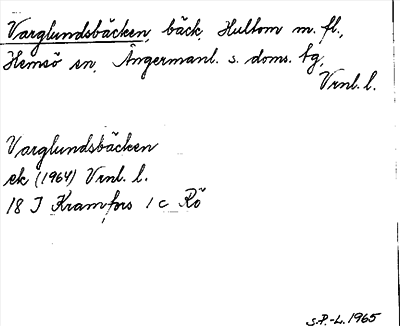 Varglundsbäcken, bäck, Hultom m. fl.,
Hemsö sn, Ångermanl. s. doms. tg,
Vrnl. l.
Varglundsbäcken
ek (1964) Vrnl. l.
18 J Kramfors 1 c Rö
S.P.-L. 1965